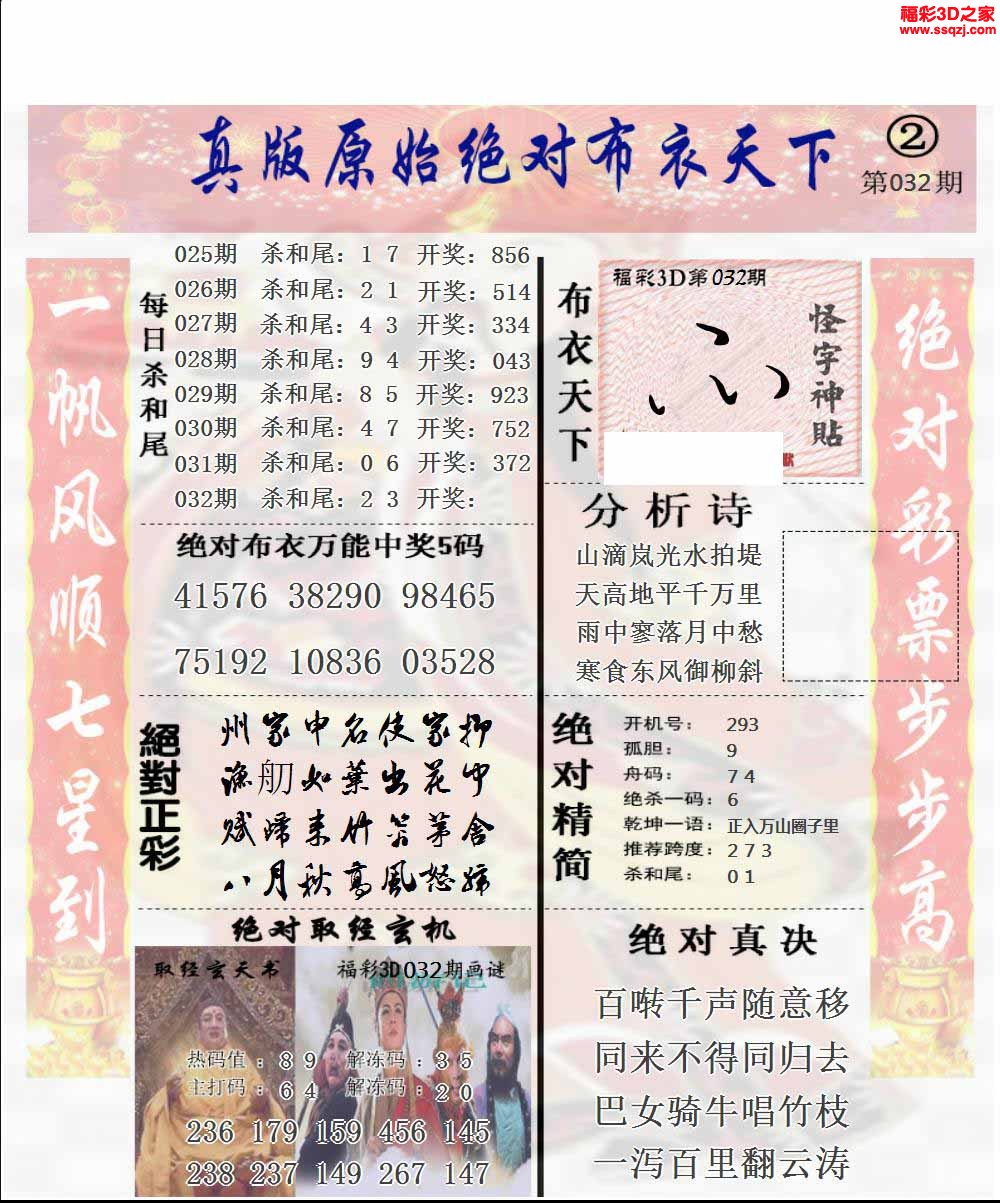 福彩3D之家
www.ssqzj.com
真版原始绝对布衣天下
②
第032期
一帆风顺七星到
每日杀和尾
025期 杀和尾：1 7 开奖：856
026期 杀和尾：2 1 开奖：514
027期 杀和尾：4 3 开奖：334
028期 杀和尾：9 4 开奖：043
029期 杀和尾：8 5 开奖：923
030期 杀和尾：4 7 开奖：752
031期 杀和尾：0 6 开奖：372
032期 杀和尾：2 3 开奖：
绝对布衣万能中奖5码
41576 38290 98465
75192 10836 03528
絕對正彩
州家申名使家抑
渔舠如葉出花中
赋歸来竹笞茅舍
八月秋高風怒
绝对取经玄机
取经玄天书
福彩3D032期画谜
热码值：8 9 解冻码：3 5
主打码：6 4 解冻码：2 0
236 179 159 456 145
238 237 149 267 147
布衣天下
福彩3D第032期
怪字神貼
分析诗
山滴岚光水拍堤
天高地平千万里
雨中寥落月中愁
寒食东风御柳斜
绝对精简
开机号：293
孤胆：9
舟码：7 4
绝杀一码：6
乾坤一语：正入万山圈子里
推荐跨度：2 7 3
杀和尾：0 1
绝对真决
百啭千声随意移
同来不得同归去
巴女骑牛唱竹枝
一泻百里翻云涛
绝对彩票步步高